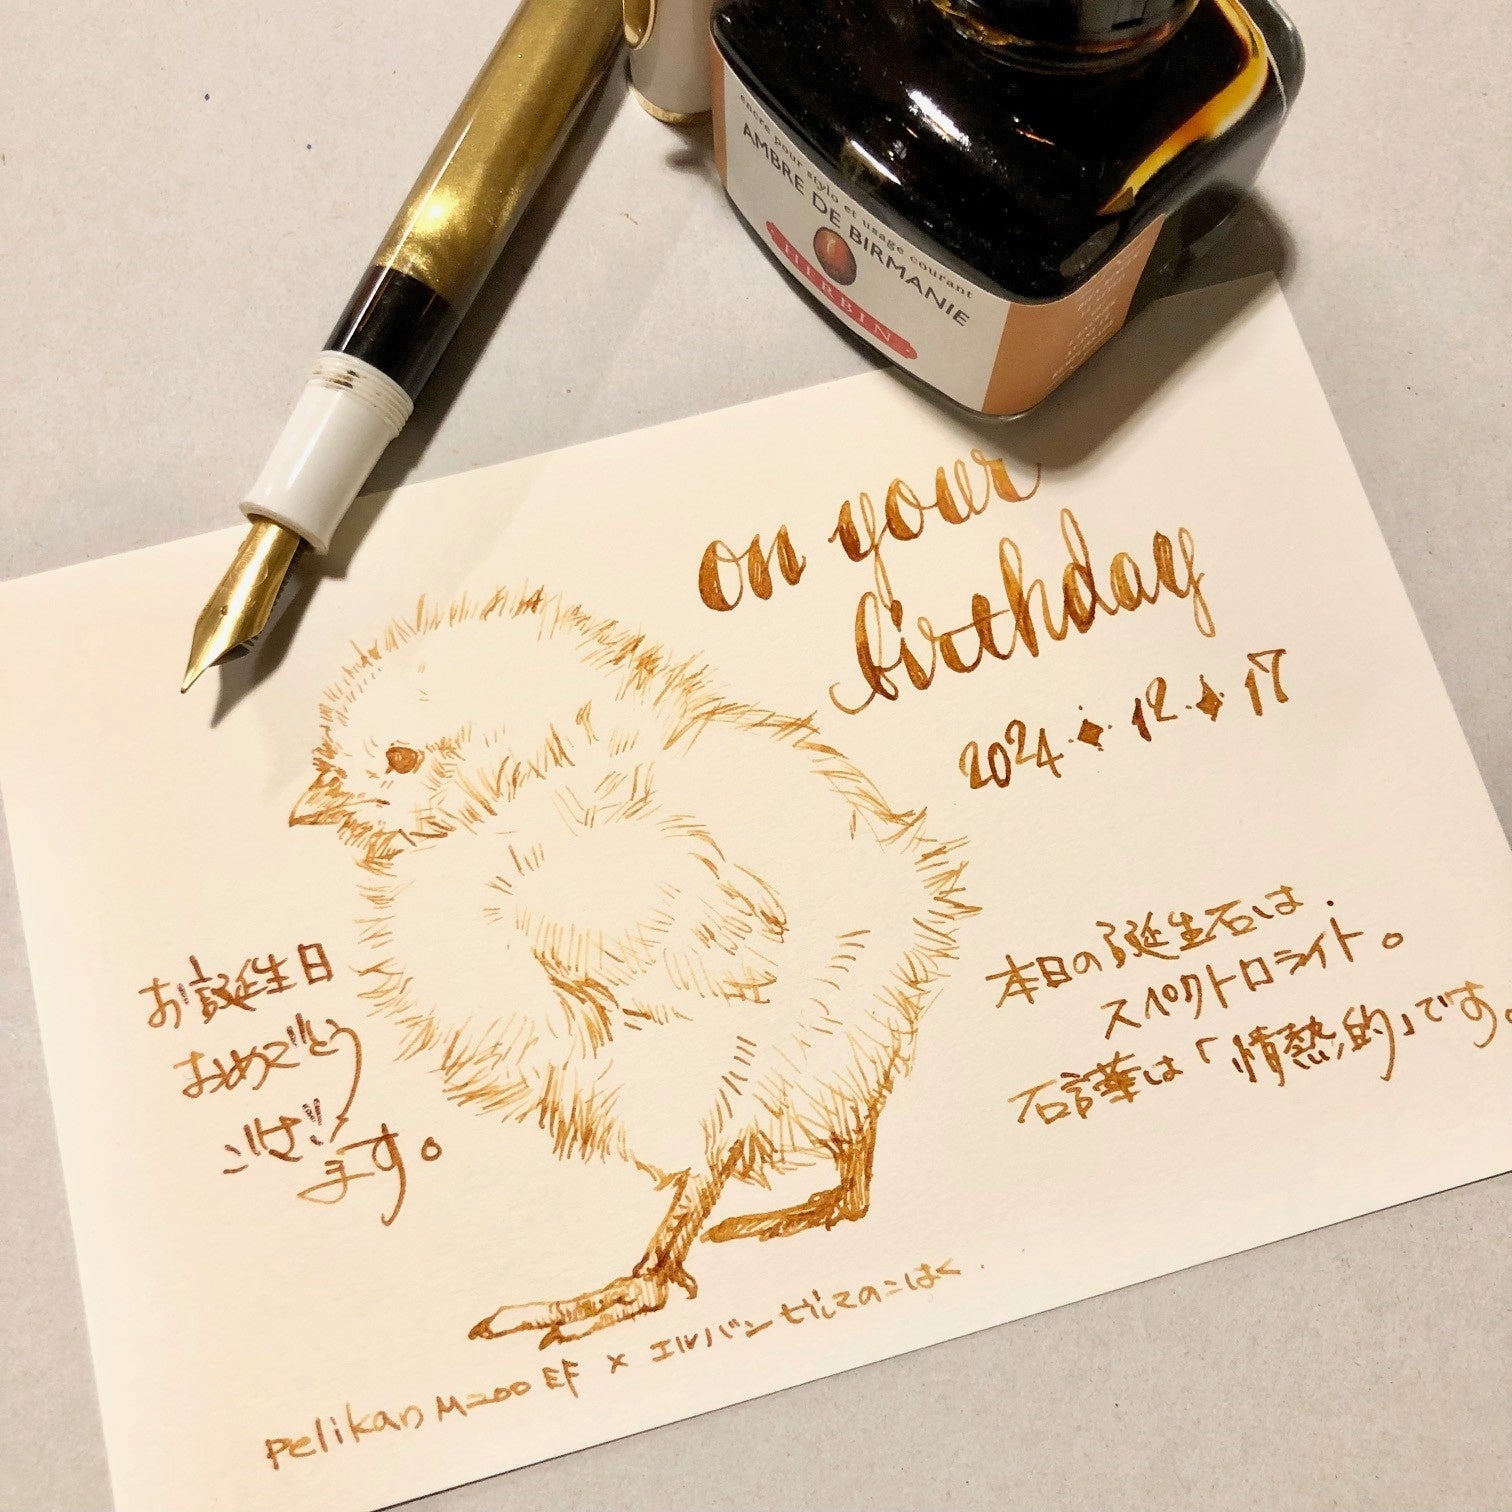 encre pour stylo et usage courant
AMBRE DE BIRMANIE
HERBIN
on your
birthday
2024・12・17
お誕生日
おめでとう
ございます。
本日の誕生石は、
スペクトロライト。
石言葉は「情熱的」です。
Pelikan M200 EF × エルバン ビルマのこはく.